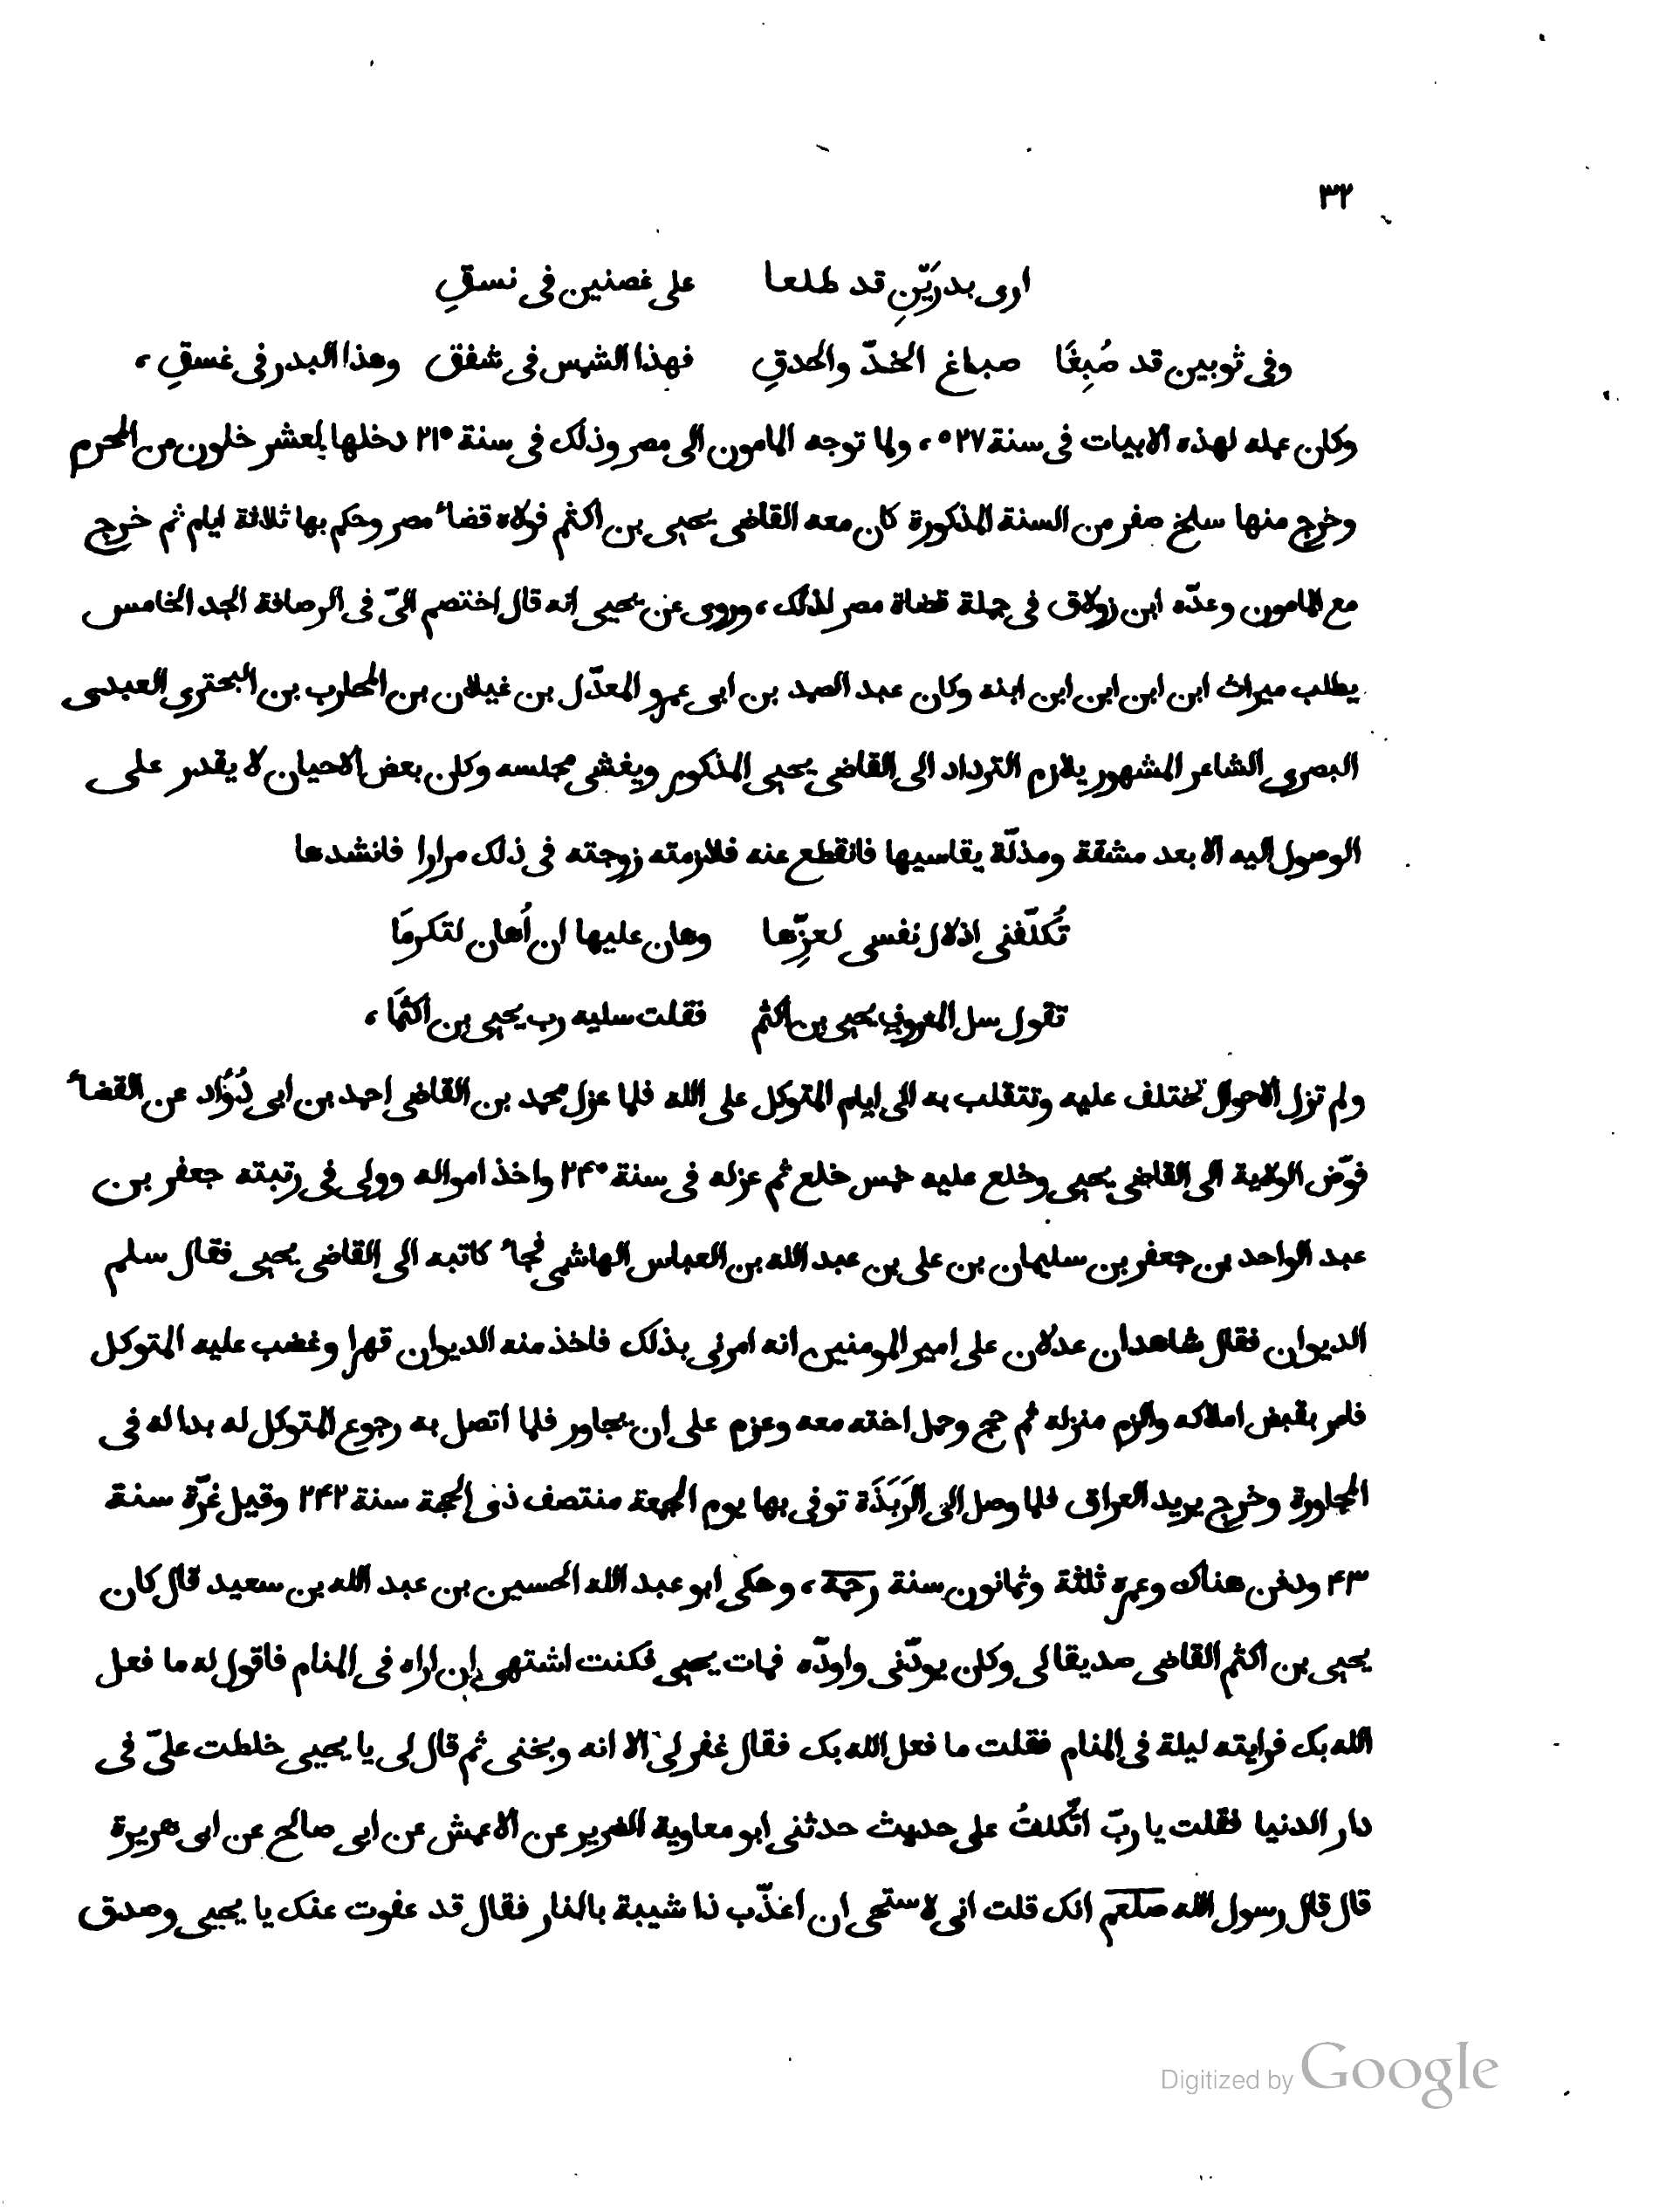 ٣٢
ارى بدرَيّنِ قد طلعا على غصنين فى نسقِ
وفى ثوبين قد صُبِغَا صباغ الخدّ والحدقِ فهذا الشمس فى شفق وهذا البدر فى غسقِ ،
وكان عمله لهذه الابيات فى سنة ٥٢٧ ، ولما توجه المامون الى مصر وذلك فى سنة ٢١٠ دخلها لعشر خلون من المحرم
وخرج منها سلخ صفر من السنة المذكورة كان معه القاضى يحيى بن اكثم فولاه قضاء مصر وحكم بها ثلاثة ايام ثم خرج
مع المامون وعدّه ابن زولاق فى جملة قضاة مصر لذلك ، وروى عن يحيى انه قال اختصم الىّ فى الرصافة الجد الخامس
يطلب ميراث ابن ابن ابن ابن ابنه وكان عبد الصمد بن ابى عمرو المعذّل بن غيلان بن المحارب بن البحترى العبدى
البصرى الشاعر المشهور يلازم الترداد الى القاضى يحيى المذكور ويغشى مجلسه وكان بعض الاحيان لا يقدر على
الوصول اليه الا بعد مشقة ومذلّة يقاسيها فانقطع عنه فلازمته زوجته فى ذلك مرارا فانشدها
تُكلّفنى اذلال نفسى لعزِّها وهان عليها ان اُهان لتكرمَا
تقول سل المعروف يحيى بن اكثم فقلت سليه رب يحيى بن اكثمَا ،
ولم تزل الاحوال تختلف عليه وتتقلب به الى ايام المتوكل على الله فلما عزل محمد بن القاضى احمد بن ابى دُوَٴاد عن القضاء
فوّض الولاية الى القاضى يحيى وخلع عليه خمس خلع ثم عزله فى سنة ٢٤٠ واخذ امواله وولى فى رتبته جعفر بن
عبد الواحد بن جعفر بن سليمان بن على بن عبد الله بن العباس الهاشمى فجاء كاتبه الى القاضى يحيى فقال سلم
الديوان فقال شاهدان عدلان على امير المومنين انه امرنى بذلك فاخذ منه الديوان قهرا وغضب عليه المتوكل
فامر بقبض املاكه والزم منزله ثم حج وحمل اخته معه وعزم على ان يجاور فلما اتصل به رجوع المتوكل له بدا له فى
المجاورة وخرج يريد العراق فلما وصل الى الرَبَذَة توفى بها يوم الجمعة منتصف ذى الحجة سنة ٢٤٢ وقيل غرّة سنة
٤٣ ودفن هناك وعمره ثلثة وثمانون سنة رحمة ، وحكى ابو عبد الله الحسين بن عبد الله بن سعيد قال كان
يحيى بن اكثم القاضى صديقا لى وكان يودّنى واودّه فمات يحيى فكنت اشتهى ان اراه فى المنام فاقول له ما فعل
الله بك فرايته ليلة فى المنام فقلت ما فعل الله بك فقال غفر لى الا انه وبخنى ثم قال لى يا يحيى خلطت علىّ فى
دار الدنيا فقلت يا ربّ اتّكلتُ على حديث حدثنى ابو معاوية الضرير عن الاعمش عن ابى صالح عن ابى هريرة
قال قال رسول الله صلعم انك قلت انى لاستحى ان اعذّب ذا شيبة بالنار فقال قد عفوت عنك يا يحيى وصدق
Digitized by Google